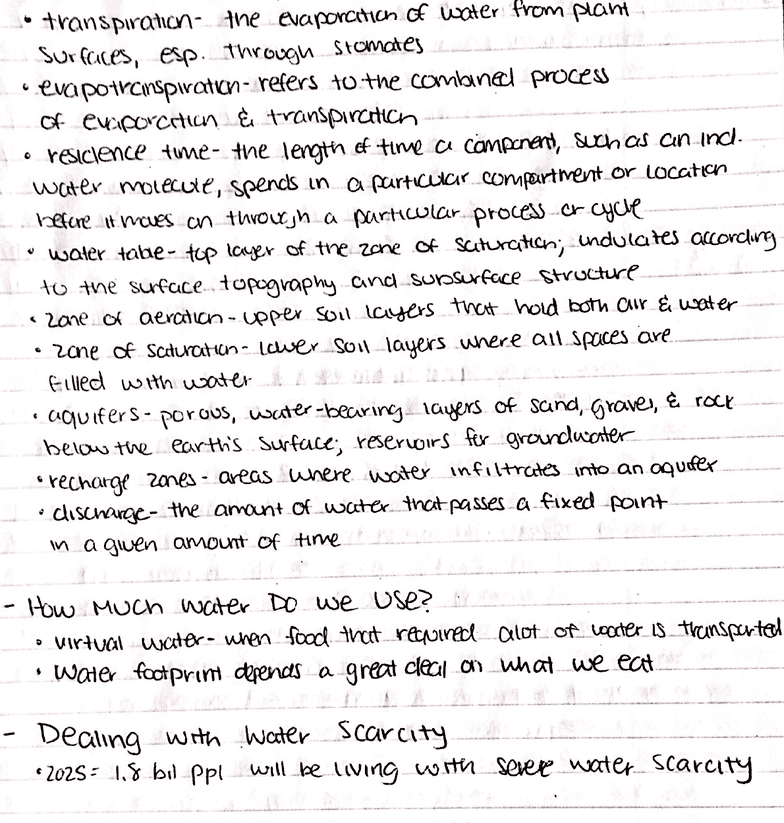 • transpiration- the evaporation of water from plant
surfaces, esp. through stomates
• evapotranspiration- refers to the combined process
of evaporation & transpiration
• residence time- the length of time a component, such as an ind.
water molecule, spends in a particular compartment or location
before it moves on through a particular process or cycle
• water table- top layer of the zone of saturation; undulates according
to the surface topography and subsurface structure
• zone of aeration- upper soil layers that hold both air & water
• zone of saturation- lower soil layers where all spaces are
filled with water
• aquifers- porous, water-bearing layers of sand, gravel, & rock
below the earth's surface; reservoirs for groundwater
• recharge zones- areas where water infiltrates into an aquifer
• discharge- the amount of water that passes a fixed point
in a given amount of time
- How Much Water Do we Use?
• virtual water- when food that required alot of water is transported
• Water footprint depends a great deal on what we eat
- Dealing with Water Scarcity
• 2025= 1.8 bil ppl will be living with severe water scarcity